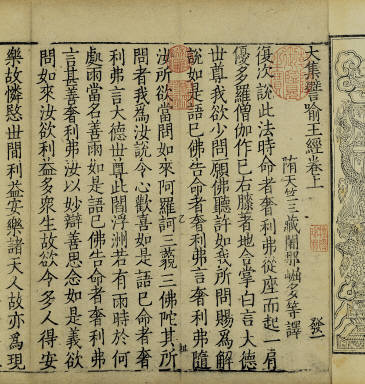 大集譬喻王經卷上
隋天竺三藏闍那崛多等譯 發一
復次說此法時命者奢利弗從座而起一肩
優多羅僧伽作已右膝著地合掌白言大德
世尊我欲少問願佛聽許如我所問賜為解
說如是語已佛告命者奢利弗言奢利弗隨
汝所欲當問如來阿羅訶三藐三佛陀其所
問者我為汝說令心歡喜如是語已命者奢
利弗言大德世尊此閻浮洲若有雨時於何
處雨當名善雨如是語已佛告命者奢利弗
言甚善奢利弗汝以妙辯善思念如是義欲
問如來汝欲利益多眾生故愍今多人得安
樂故憐愍世間利益安樂諸天人故亦為現